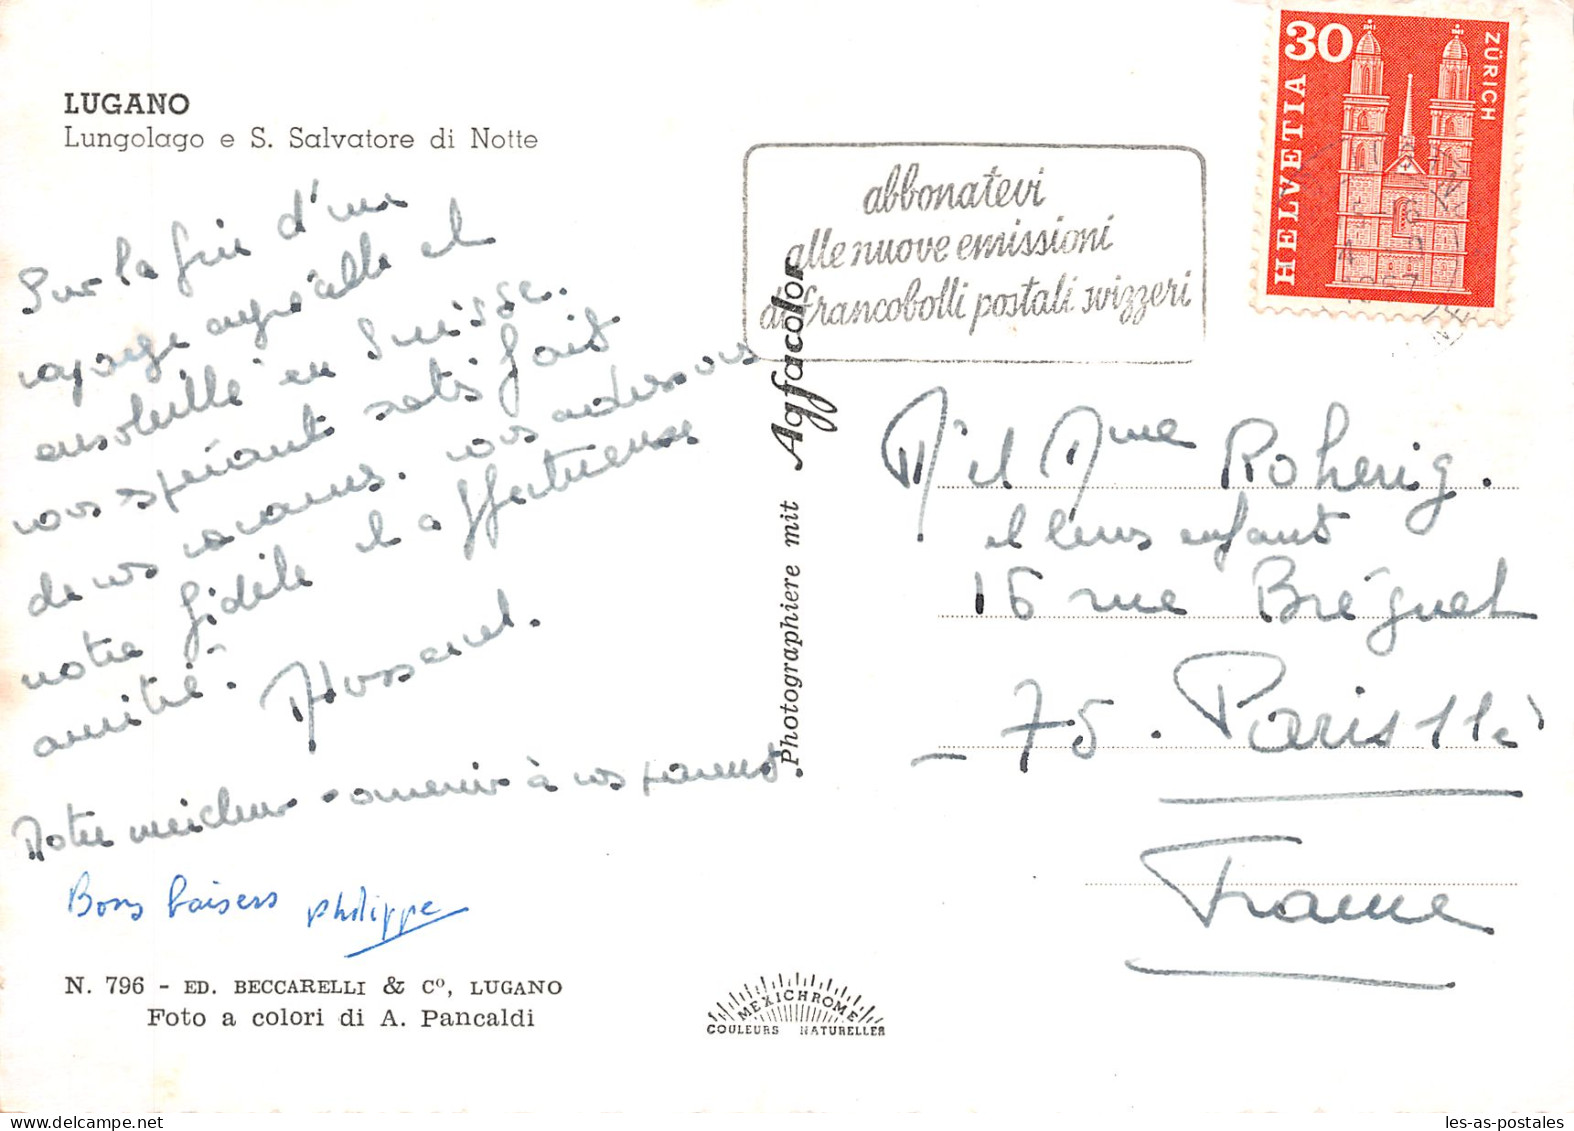 LUGANO
Lungolago e S. Salvatore di Notte
Sur la fin d'un
voyage agréable et
ensoleillé en Suisse.
vous espérant satisfait
de vos vacances. vous adressons
notre fidèle et affectueuse
amitié.
Notre meilleur souvenir à vos parents.
Bons baisers philippe
N. 796 - ED. BECCARELLI & Cº, LUGANO
Foto a colori di A. Pancaldi
Photographiere mit Agfacolor
MEXICHROME
COULEURS NATURELLES
abbonatevi
alle nuove emissioni
di francobolli postali svizzeri
30
HELVETIA
ZÜRICH
M et Mme Roherig.
et leurs enfants
16 rue Bréguet
- 75. Paris 11e
France
les-as-postales